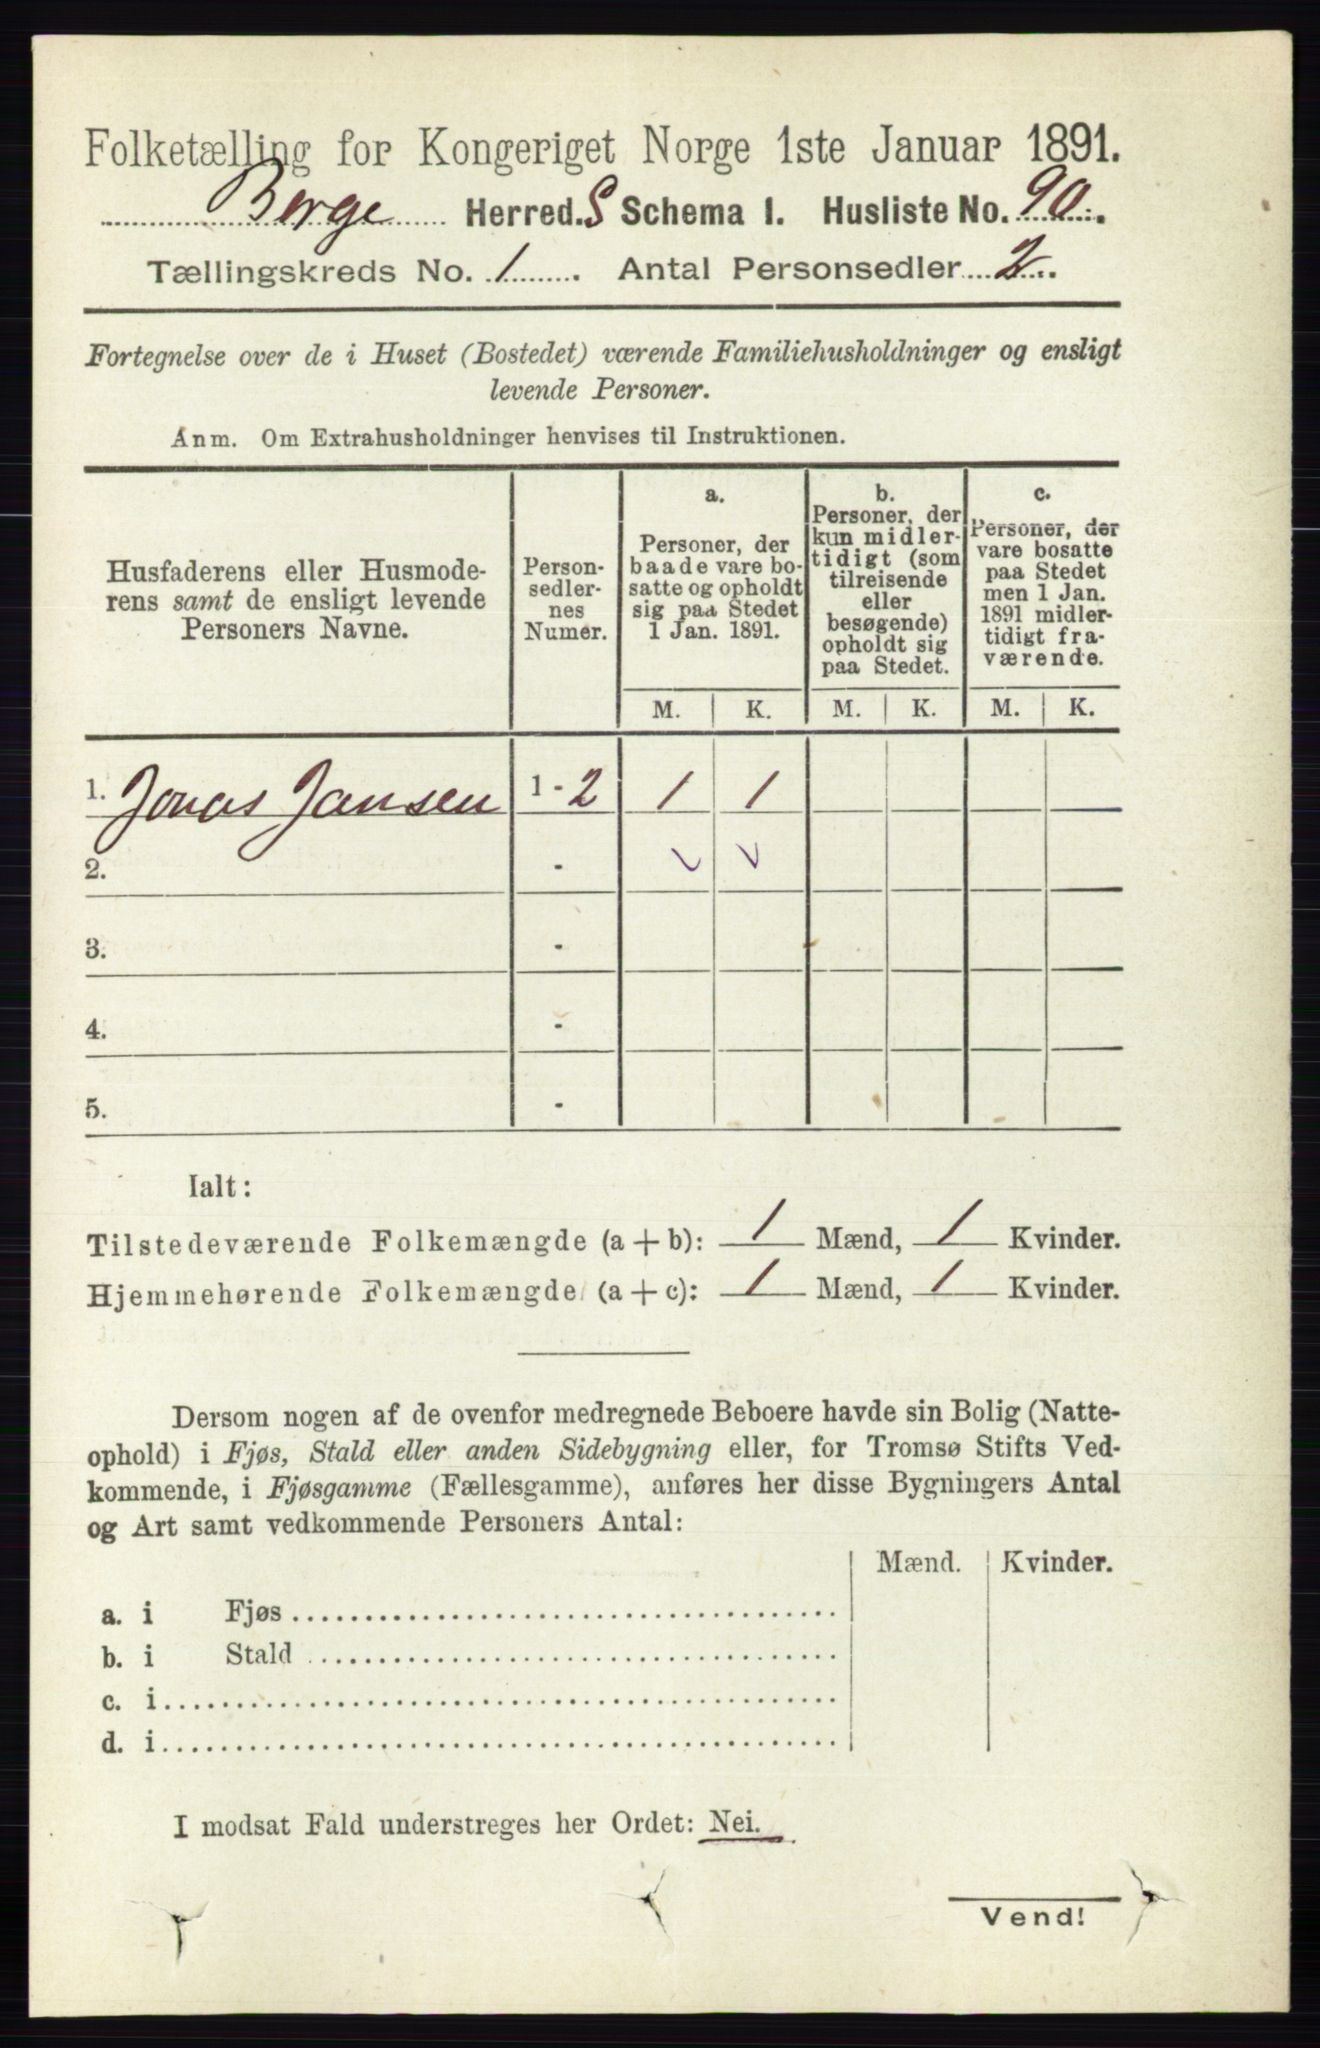 Folketælling for Kongeriget Norge 1ste Januar 1891.
Borge Herred. S Schema 1. Husliste No. 90.
Tællingskreds No. 1. Antal Personsedler 2.
Fortegnelse over de i Huset (Bostedet) værende Familiehusholdninger og ensligt
levende Personer.
Anm. Om Extrahusholdninger henvises til Instruktionen.
Husfaderens eller Husmode-
rens samt de ensligt levende
Personers Navne.
Person-
sedler-
nes
Numer.
a.
Personer, der
baade vare bo-
satte og opholdt
sig paa Stedet
1 Jan. 1891.
b.
Personer, der
kun midler-
tidigt (som
tilreisende
eller
besøgende)
opholdt sig
paa Stedet.
c.
Personer, der
vare bosatte
paa Stedet
men 1 Jan.
1891 midler-
tidigt fra-
værende.
M. K. M. K. M. K.
1. Jonas Jansen 1 - 2 1 1
2. -
3. -
4. -
5. -
Ialt:
Tilstedeværende Folkemængde (a + b): 1 Mænd, 1 Kvinder.
Hjemmehørende Folkemængde (a + c): 1 Mænd, 1 Kvinder.
Dersom nogen af de ovenfor medregnede Beboere havde sin Bolig (Natte-
ophold) i Fjøs, Stald eller anden Sidebygning eller, for Tromsø Stifts Ved-
kommende, i Fjøsgamme (Fællesgamme), anføres her disse Bygningers Antal
og Art samt vedkommende Personers Antal:
Mænd. Kvinder.
a. i Fjøs
b. i Stald
c. i
d. i
I modsat Fald understreges her Ordet: Nei.
Vend!